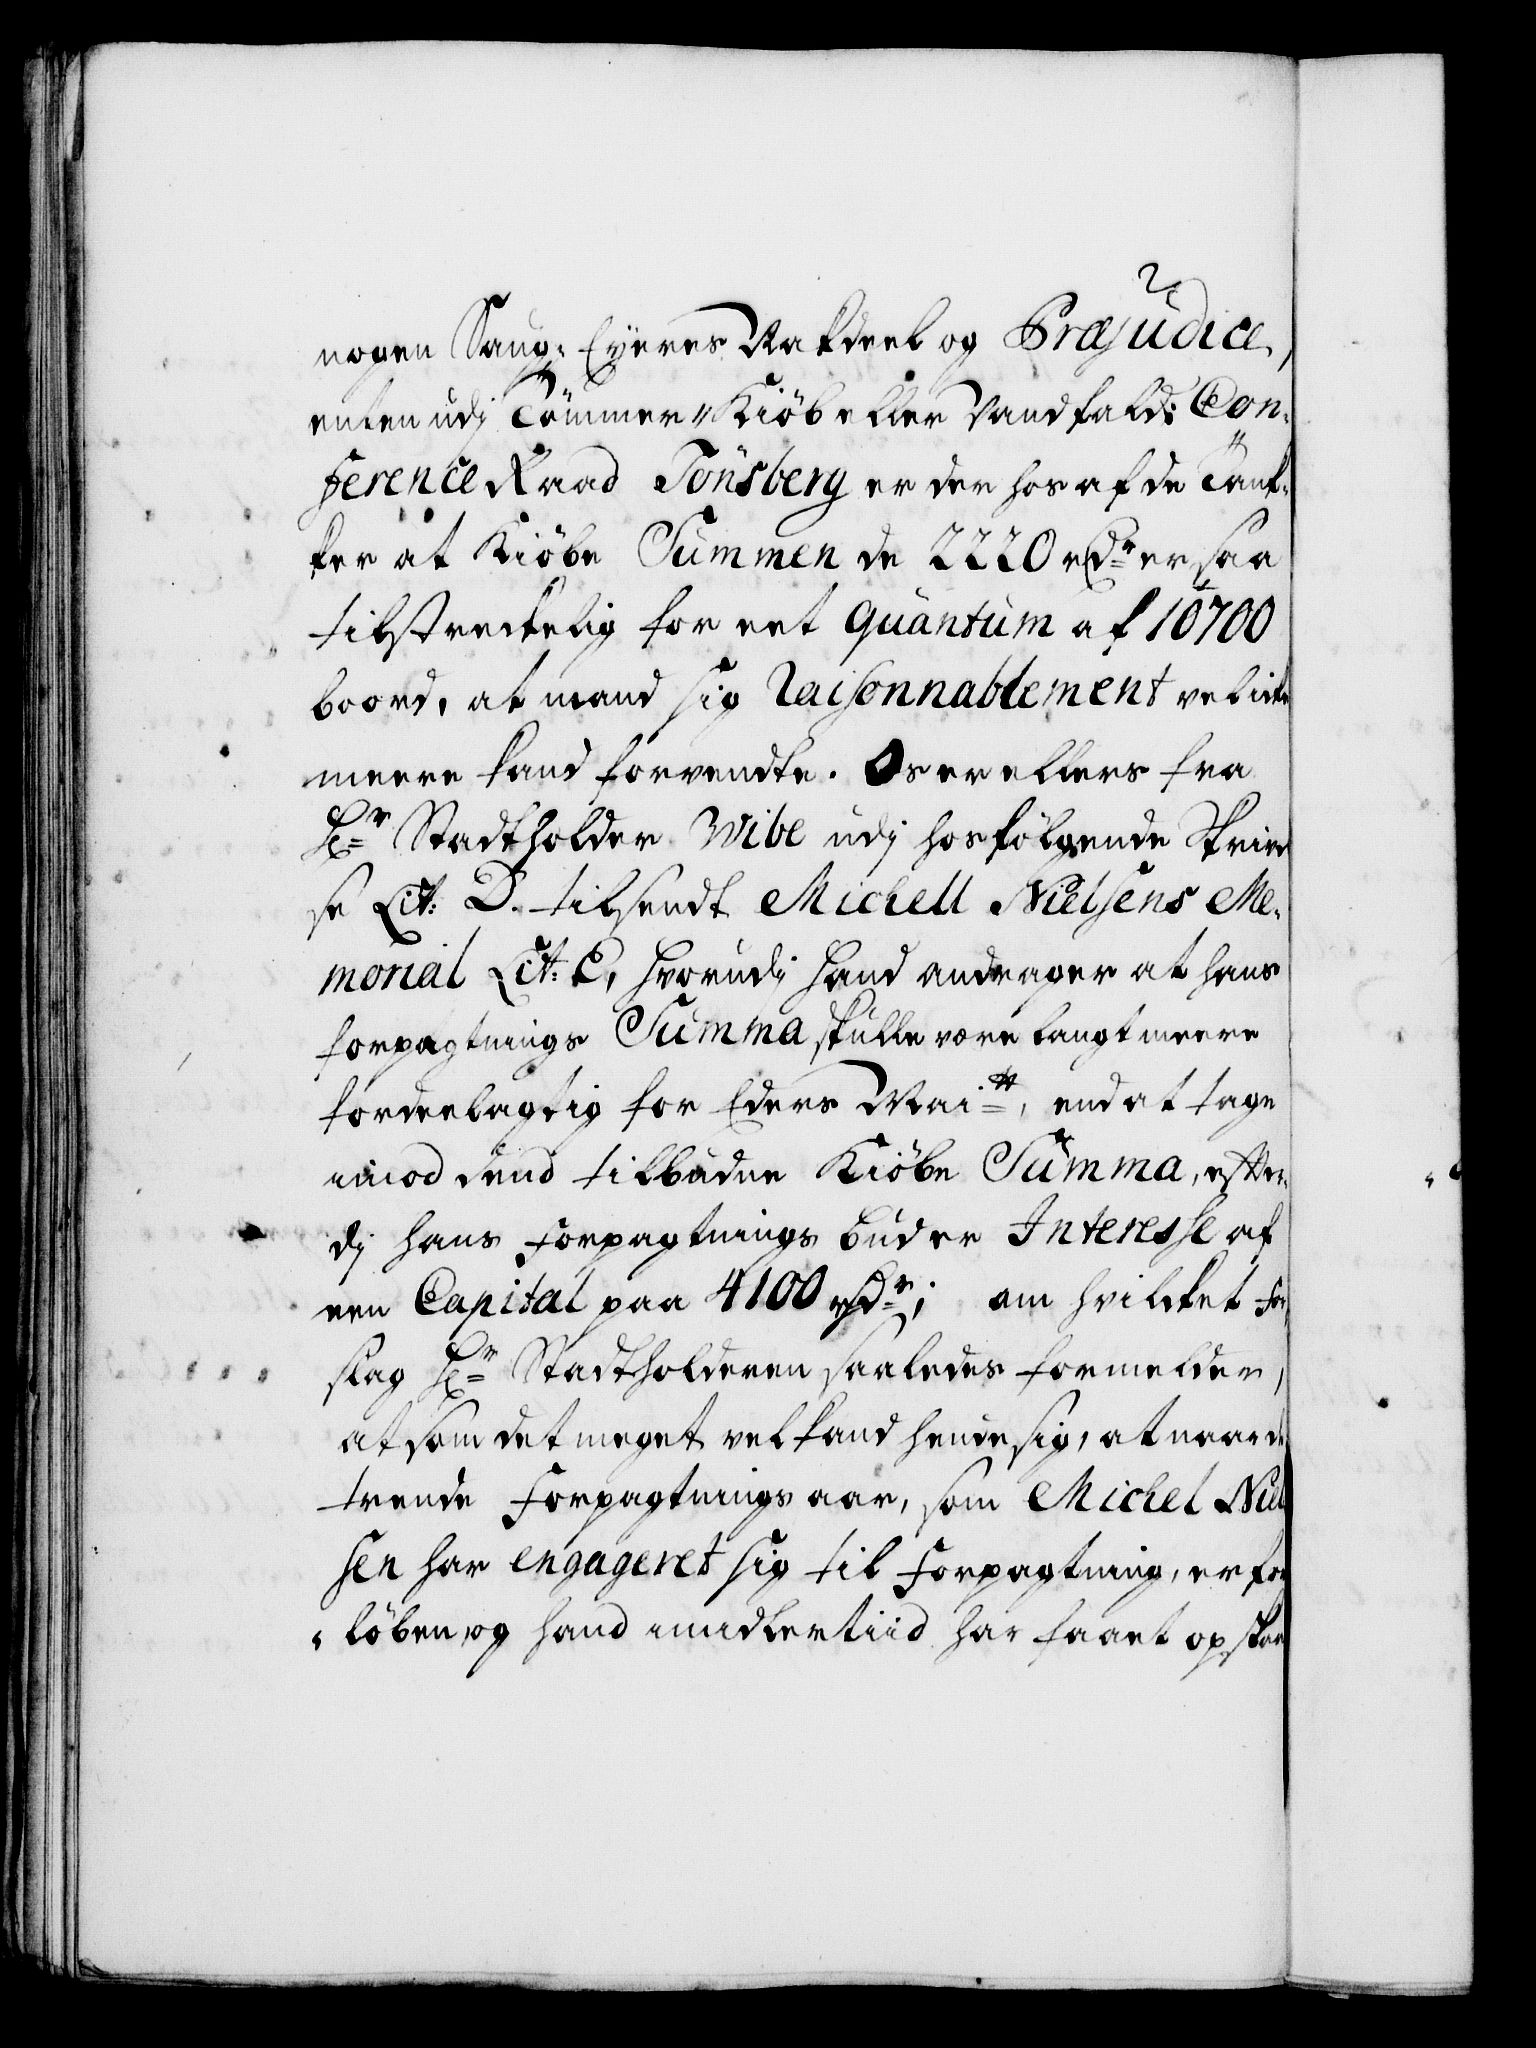 nogen Saug-Eyeres Nakdeel og Præjudice,
enten udj Tömmer-Kiöb eller Vandfald: Con-
ference Raad Tönsberg er der hos af de Tank-
ker at Kiöbe Summen de 2220 rdr er saa
tilstreckelig for eet quantum af 10700
boord, at mand sig raisonnablement vel icke
meere kand forvendte. Os er ellers fra
Hr Stadtholder Wibe udj hosfölgende Skrivel
se Lit: D. tilsendt Michell Nielsens Me-
morial Lit: E, hvorudj hand andrager at hans
forpagtnings Summa skulle være langt meere
fordeelagtig for Eders Maitt, end at tage
imod dend tilbudne Kiöbe Summa, efter-
dj hans Forpagtnings bud er Interesse af
een Capital paa 4100 rdr; om hvilcket For
slag Hr Stadtholderen saaledes formelder,
at som det meget vel kand hende sig, at naar de
trende Forpagtnings aar, som Michel Niel
sen har engageret sig til Forpagtning, er for
löben, og hand imidlertiid har faaet opskaa